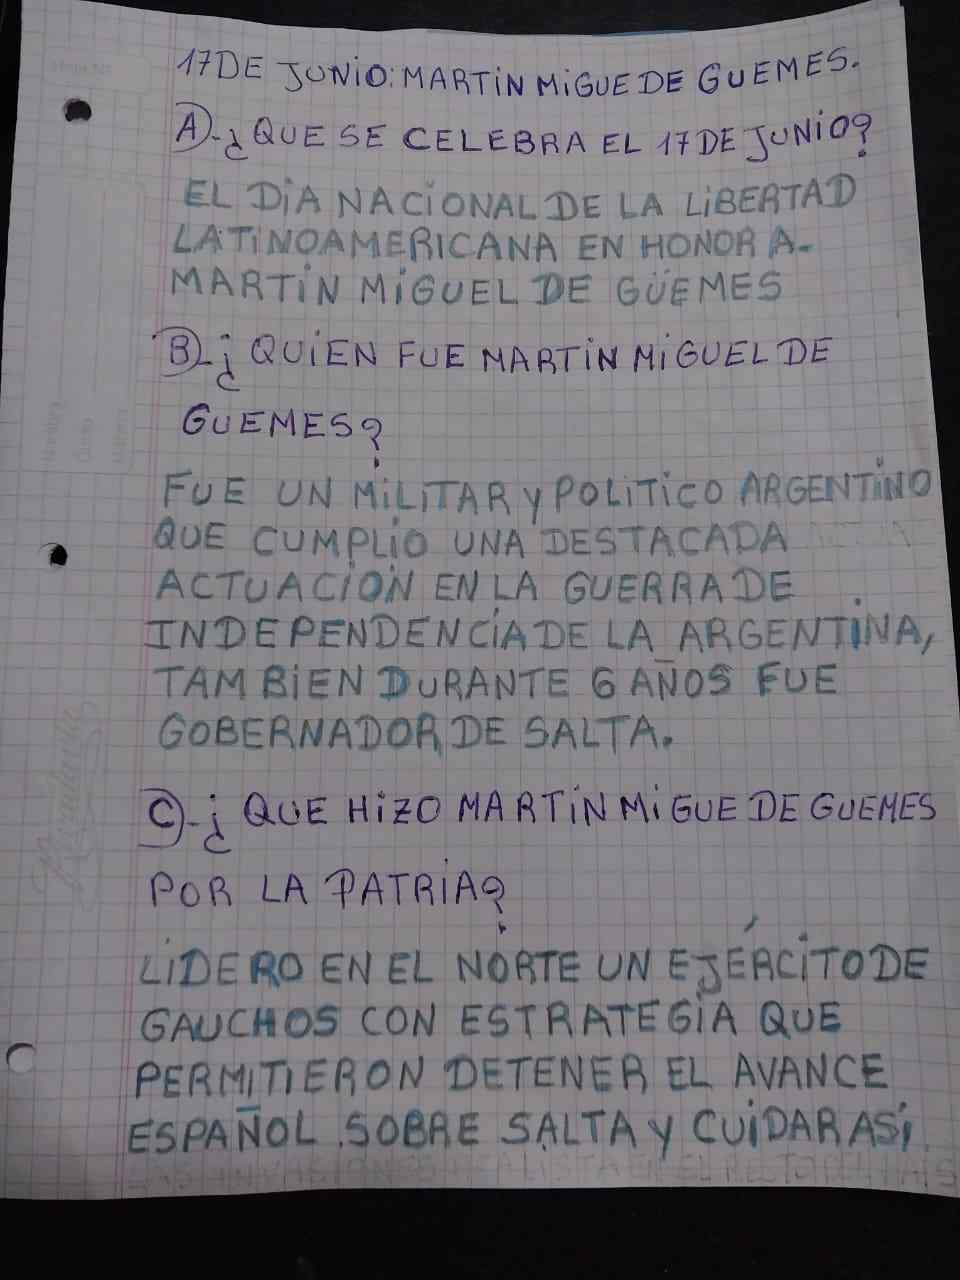 17 DE JUNIO: MARTIN MIGUE DE GUEMES.
A)-¿QUE SE CELEBRA EL 17 DE JUNIO?
EL DIA NACIONAL DE LA LIBERTAD
LATINOAMERICANA EN HONOR A-
MARTIN MIGUEL DE GÜEMES
B)-¿QUIEN FUE MARTIN MIGUEL DE
GUEMES?
FUE UN MILITAR Y POLITICO ARGENTINO
QUE CUMPLIO UNA DESTACADA
ACTUACION EN LA GUERRA DE
INDEPENDENCIA DE LA ARGENTINA,
TAMBIEN DURANTE 6 AÑOS FUE
GOBERNADOR DE SALTA.
C)-¿QUE HIZO MARTIN MIGUE DE GUEMES
POR LA PATRIA?
LIDERO EN EL NORTE UN EJÉRCITO DE
GAUCHOS CON ESTRATEGIA QUE
PERMITIERON DETENER EL AVANCE
ESPAÑOL SOBRE SALTA Y CUIDAR ASI
Rivadavia